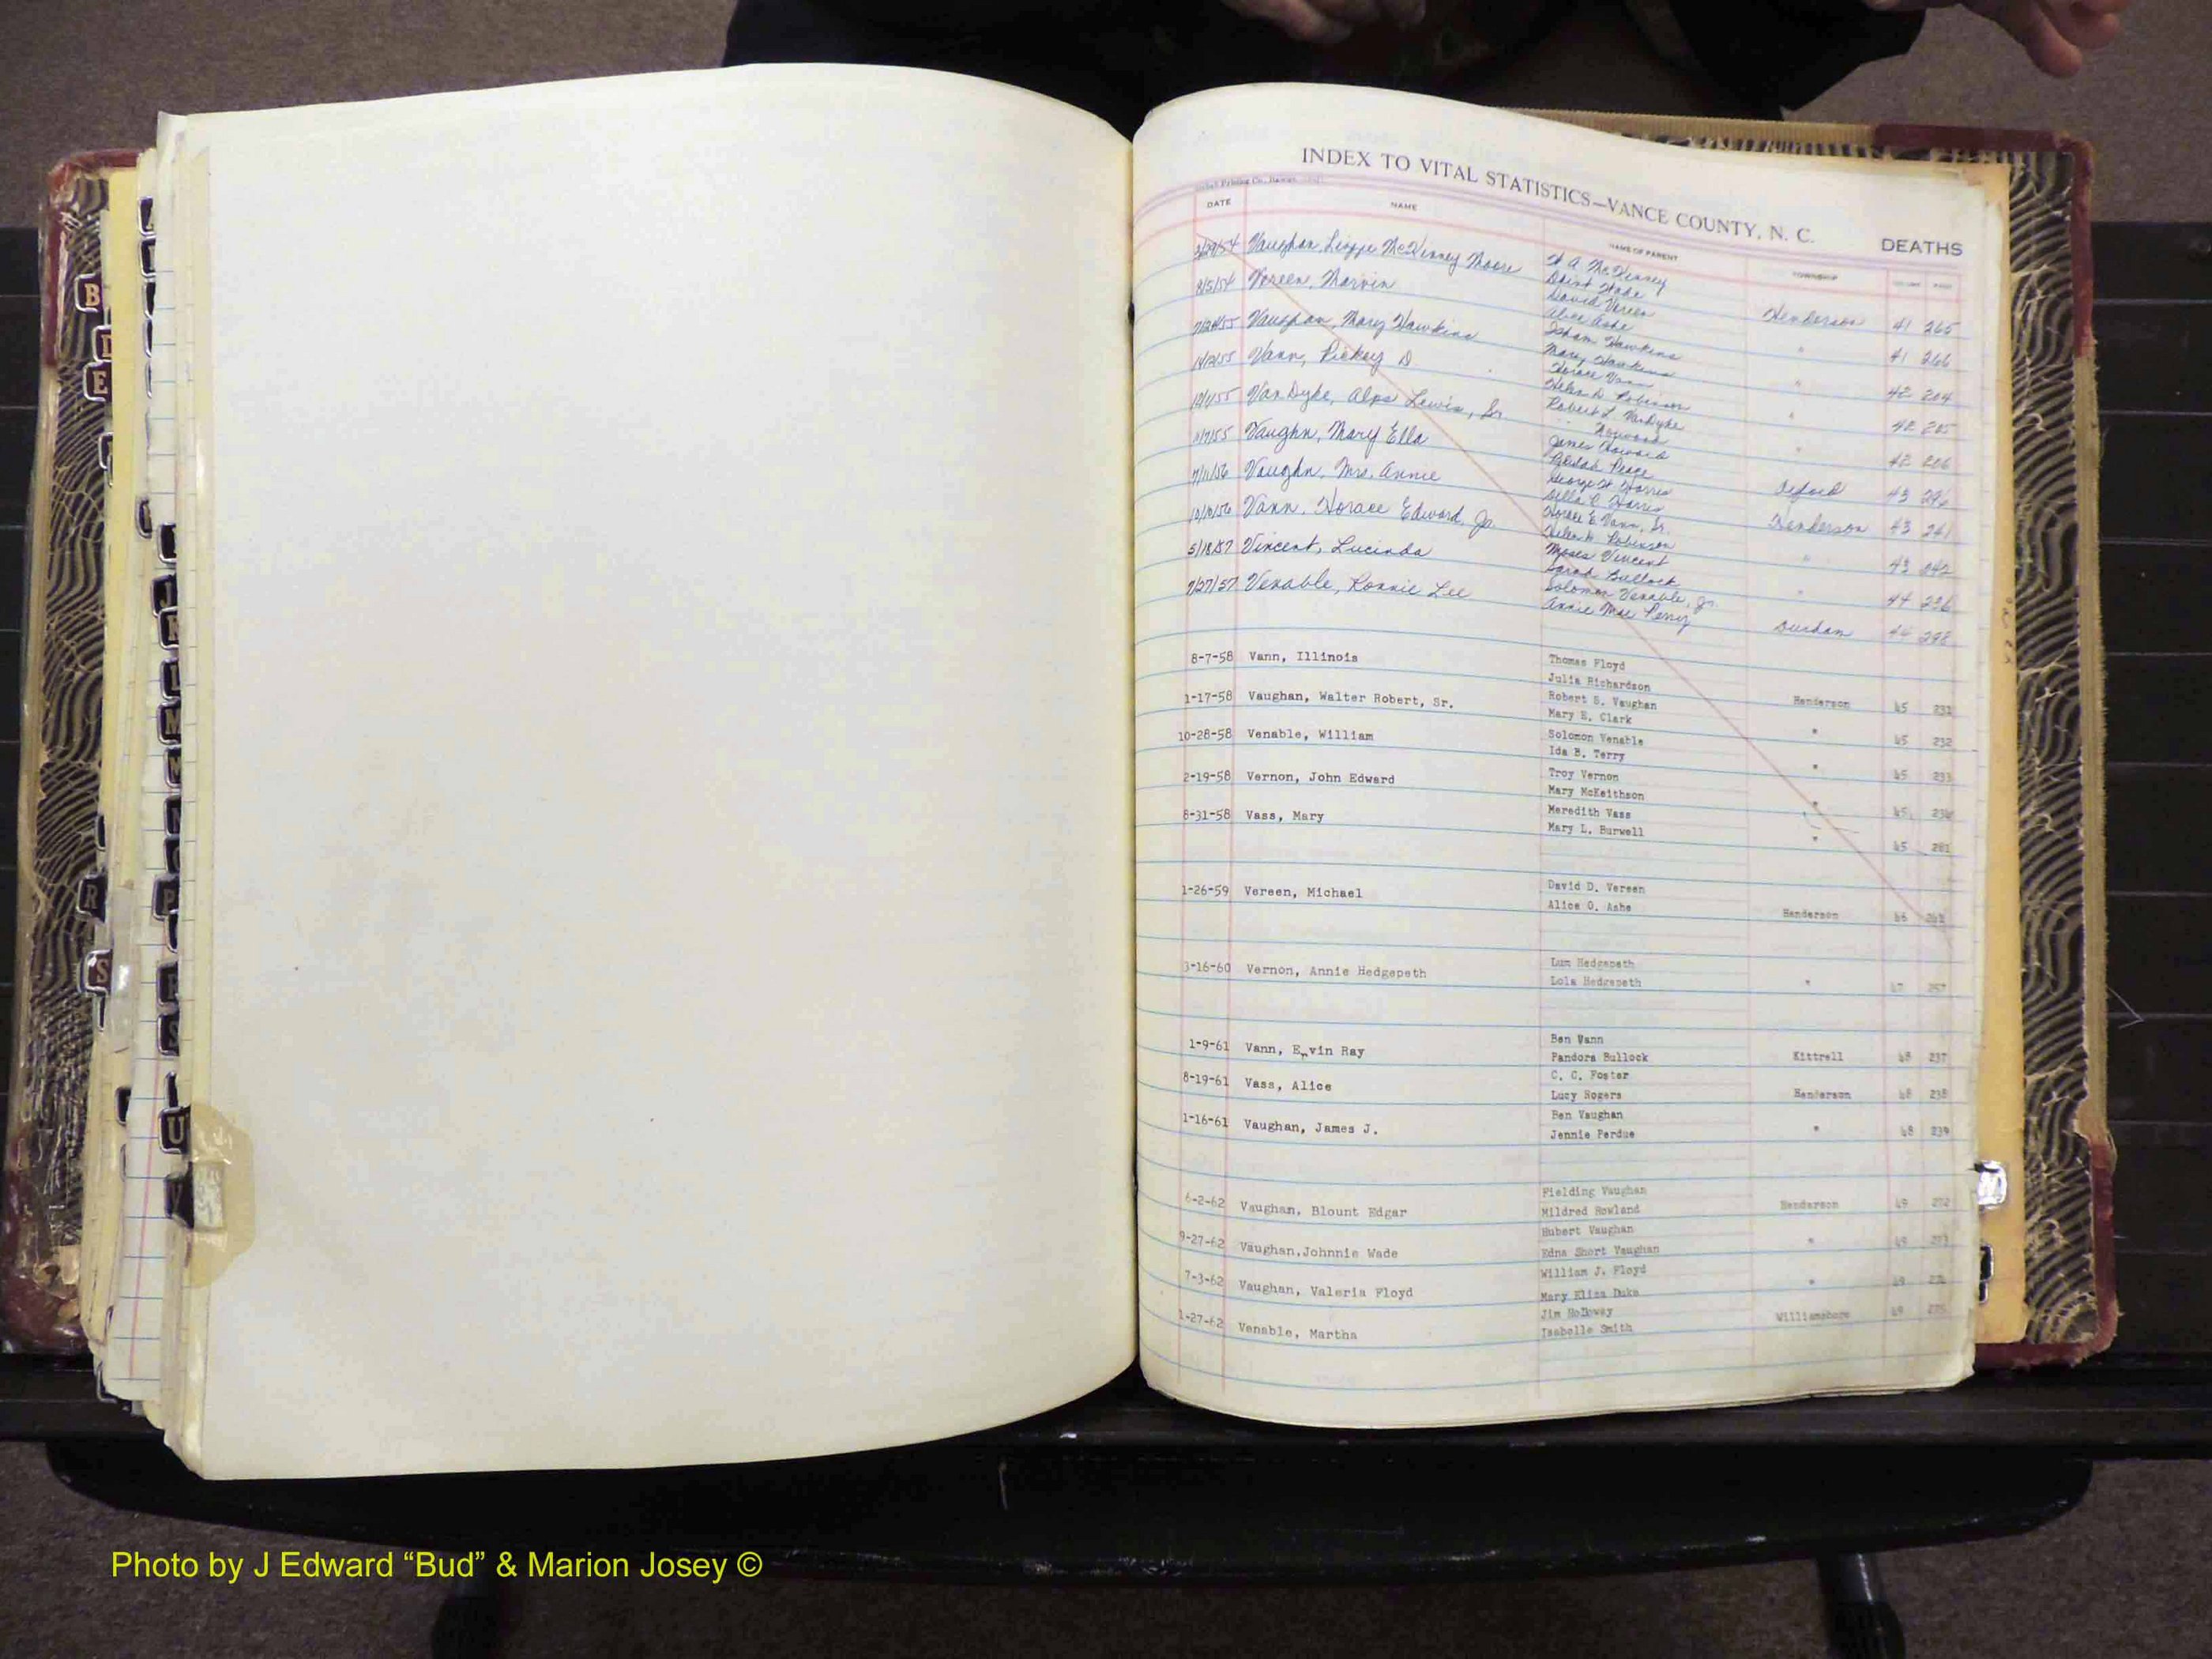 INDEX TO VITAL STATISTICS—VANCE COUNTY, N. C. DEATHS
DATE NAME NAME OF PARENT TOWNSHIP
Vaughan, McKinney Moore
Henderson 41 265
8/5/54 Vereen, Marvin David Vereen
Alice Ashe 41 266
Vaughan, Mary Hawkins Isham Hawkins
Mary Hawkins 42 204
Vann, D. Horace Vann
Helen D. Robinson 42 205
Van Dyke, Lewis, Sr. Robert L. Van Dyke
42 206
Vaughn, Mary Ella James
43
7/11/56 Vaughn, Mrs. Annie George H. Harris
Harris Henderson 43 241
10/10/56 Vann, Horace Edward, Jr. Horace E. Vann, Sr.
Helen D. Robinson 43 242
5/18/57 Vincent, Lucinda Moses Vincent
Sarah Bullock 44 236
7/27/57 Venable, Ronnie Lee Solomon Venable, Jr.
Annie Mae Perry Durham 44 298
8-7-58 Vann, Illinois Thomas Floyd
Julia Richardson Henderson 45 231
1-17-58 Vaughan, Walter Robert, Sr. Robert S. Vaughan
Mary E. Clark " 45 232
10-28-58 Venable, William Solomon Venable
Ida B. Terry " 45 233
2-19-58 Vernon, John Edward Troy Vernon
Mary McKeithson " 45 234
8-31-58 Vass, Mary Meredith Vass
Mary L. Burwell " 45 281
1-26-59 Vereen, Michael David D. Vereen
Alice O. Ashe Henderson 46
3-16-60 Vernon, Annie Hedgepeth Lum Hedgepeth
Lola Hedgepeth " 47 257
1-9-61 Vann, Ervin Ray Ben Vann
Pandora Bullock Kittrell 48 237
8-19-61 Vass, Alice C. C. Foster
Lucy Rogers Henderson 48 238
1-16-61 Vaughan, James J. Ben Vaughan
Jennie Perdue " 48 239
6-2-62 Vaughan, Blount Edgar Fielding Vaughan
Mildred Rowland Henderson 49 272
9-27-62 Vaughan,Johnnie Wade Hubert Vaughan
Edna Short Vaughan " 49 273
7-3-62 Vaughan, Valeria Floyd William J. Floyd
Mary Eliza Duke " 49 274
1-27-62 Venable, Martha Jim Holloway
Isabelle Smith Williamsboro 49 275
B
D
E
J
K
L
M
P
R
S
U
V
Photo by J Edward “Bud” & Marion Josey ©